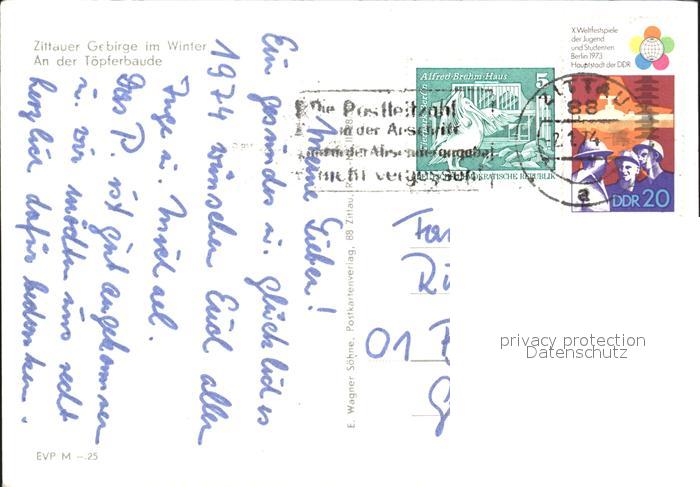 Zittauer Gebirge im Winter
An der Töpferbaude
Meine Lieben!
Ein gesundes u. glückliches
1974 wünschen Euch allen
Inge u. Michael.
Das P. ist gut angekommen
u. wir möchten uns recht
herzlich dafür bedanken.
EVP M -.25
E. Wagner Söhne, Postkartenverlag, 88 Zittau,
Die Postleitzahl
in der Anschrift
und in der Absenderangabe
nicht vergessen
Alfred-Brehm-Haus
5
DEMOKRATISCHE REPUBLIK
ZITTAU
88
74
a
X. Weltfestspiele
der Jugend
und Studenten
Berlin 1973
Hauptstadt der DDR
DDR 20
01
privacy protection
Datenschutz